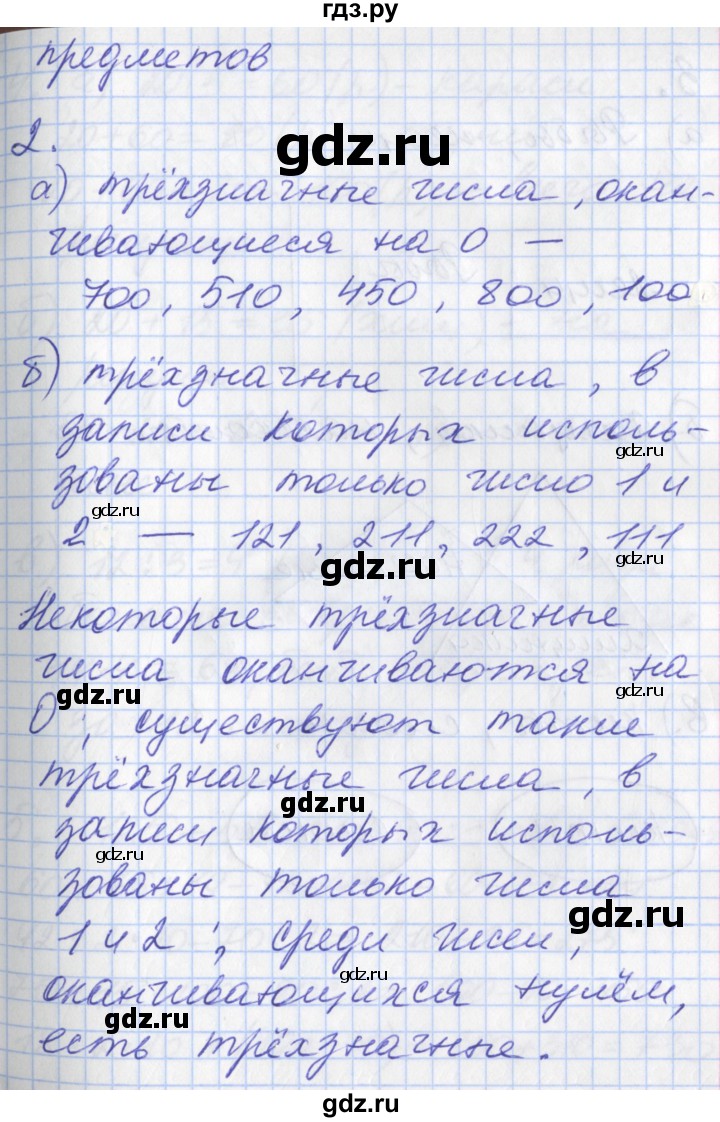 гдз.ру
предметов
gdz.ru
2.
а) трёхзначные числа, окан-
чивающиеся на 0 —
700, 510, 450, 800, 100
б) трёхзначные числа, в
записи которых исполь-
gdz.ru
зованы только число 1 и
gdz.ru
2 — 121, 211, 222, 111
gdz.ru
gdz.ru
Некоторые трёхзначные
числа оканчиваются на
gdz.ru
gdz.ru
0; существуют такие
трёхзначные числа, в
gdz.ru
записи которых исполь-
gdz.ru
зованы только числа
gdz.ru
1 и 2; среди чисел,
gdz.ru
оканчивающихся нулём,
gdz.ru
есть трёхзначные.
gdz.ru
gdz.ru